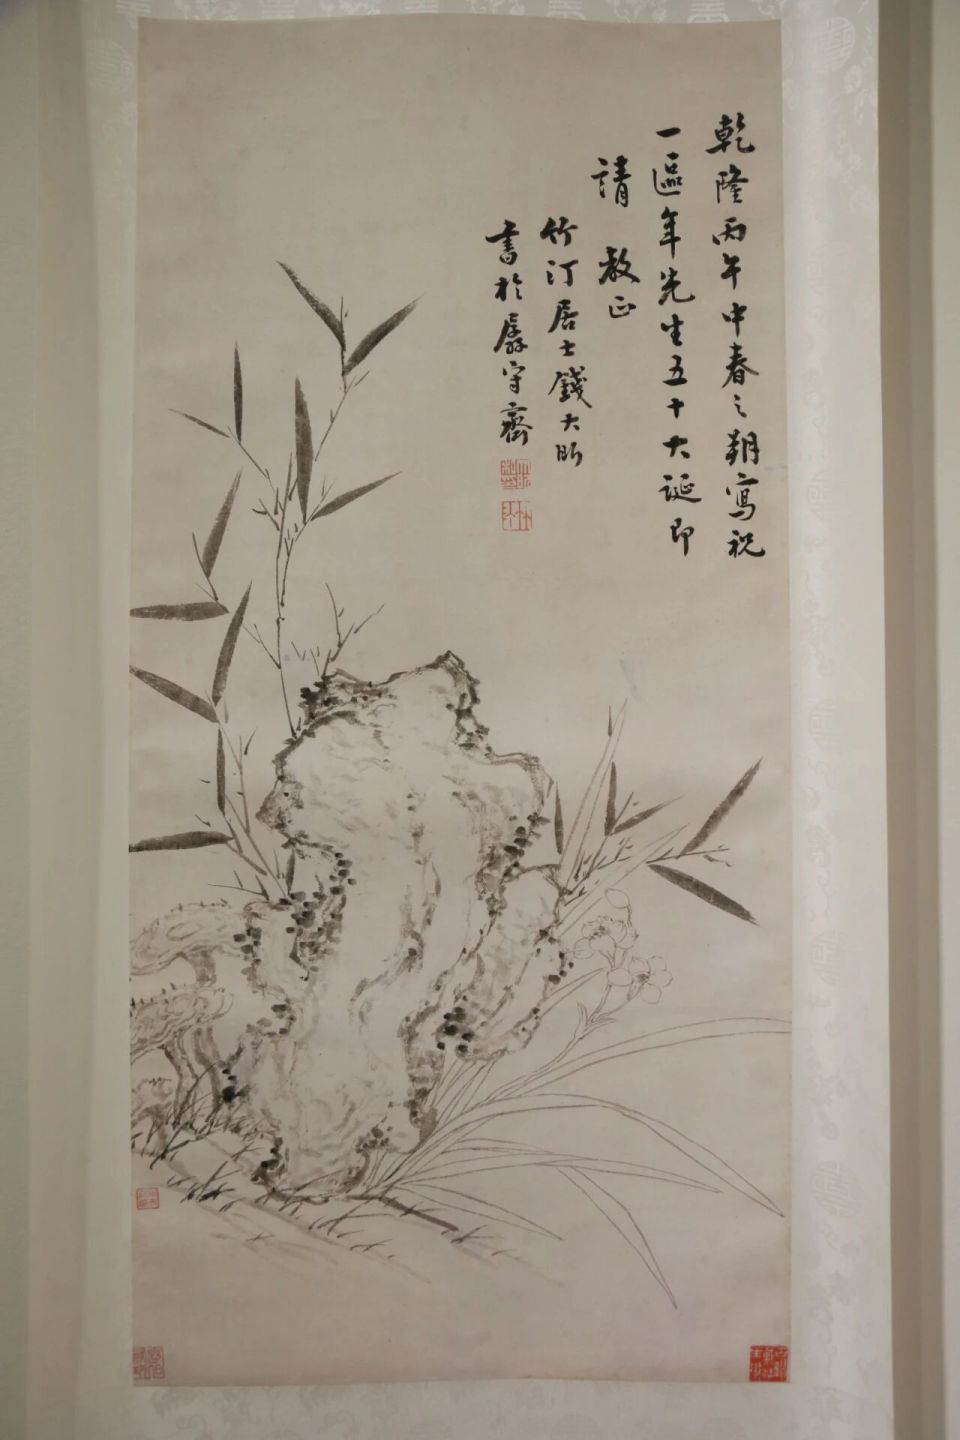 乾隆丙午中春之朔寫祝
一區年先生五十大誕即
請教正
竹汀居士錢大昕
書於孱守齋